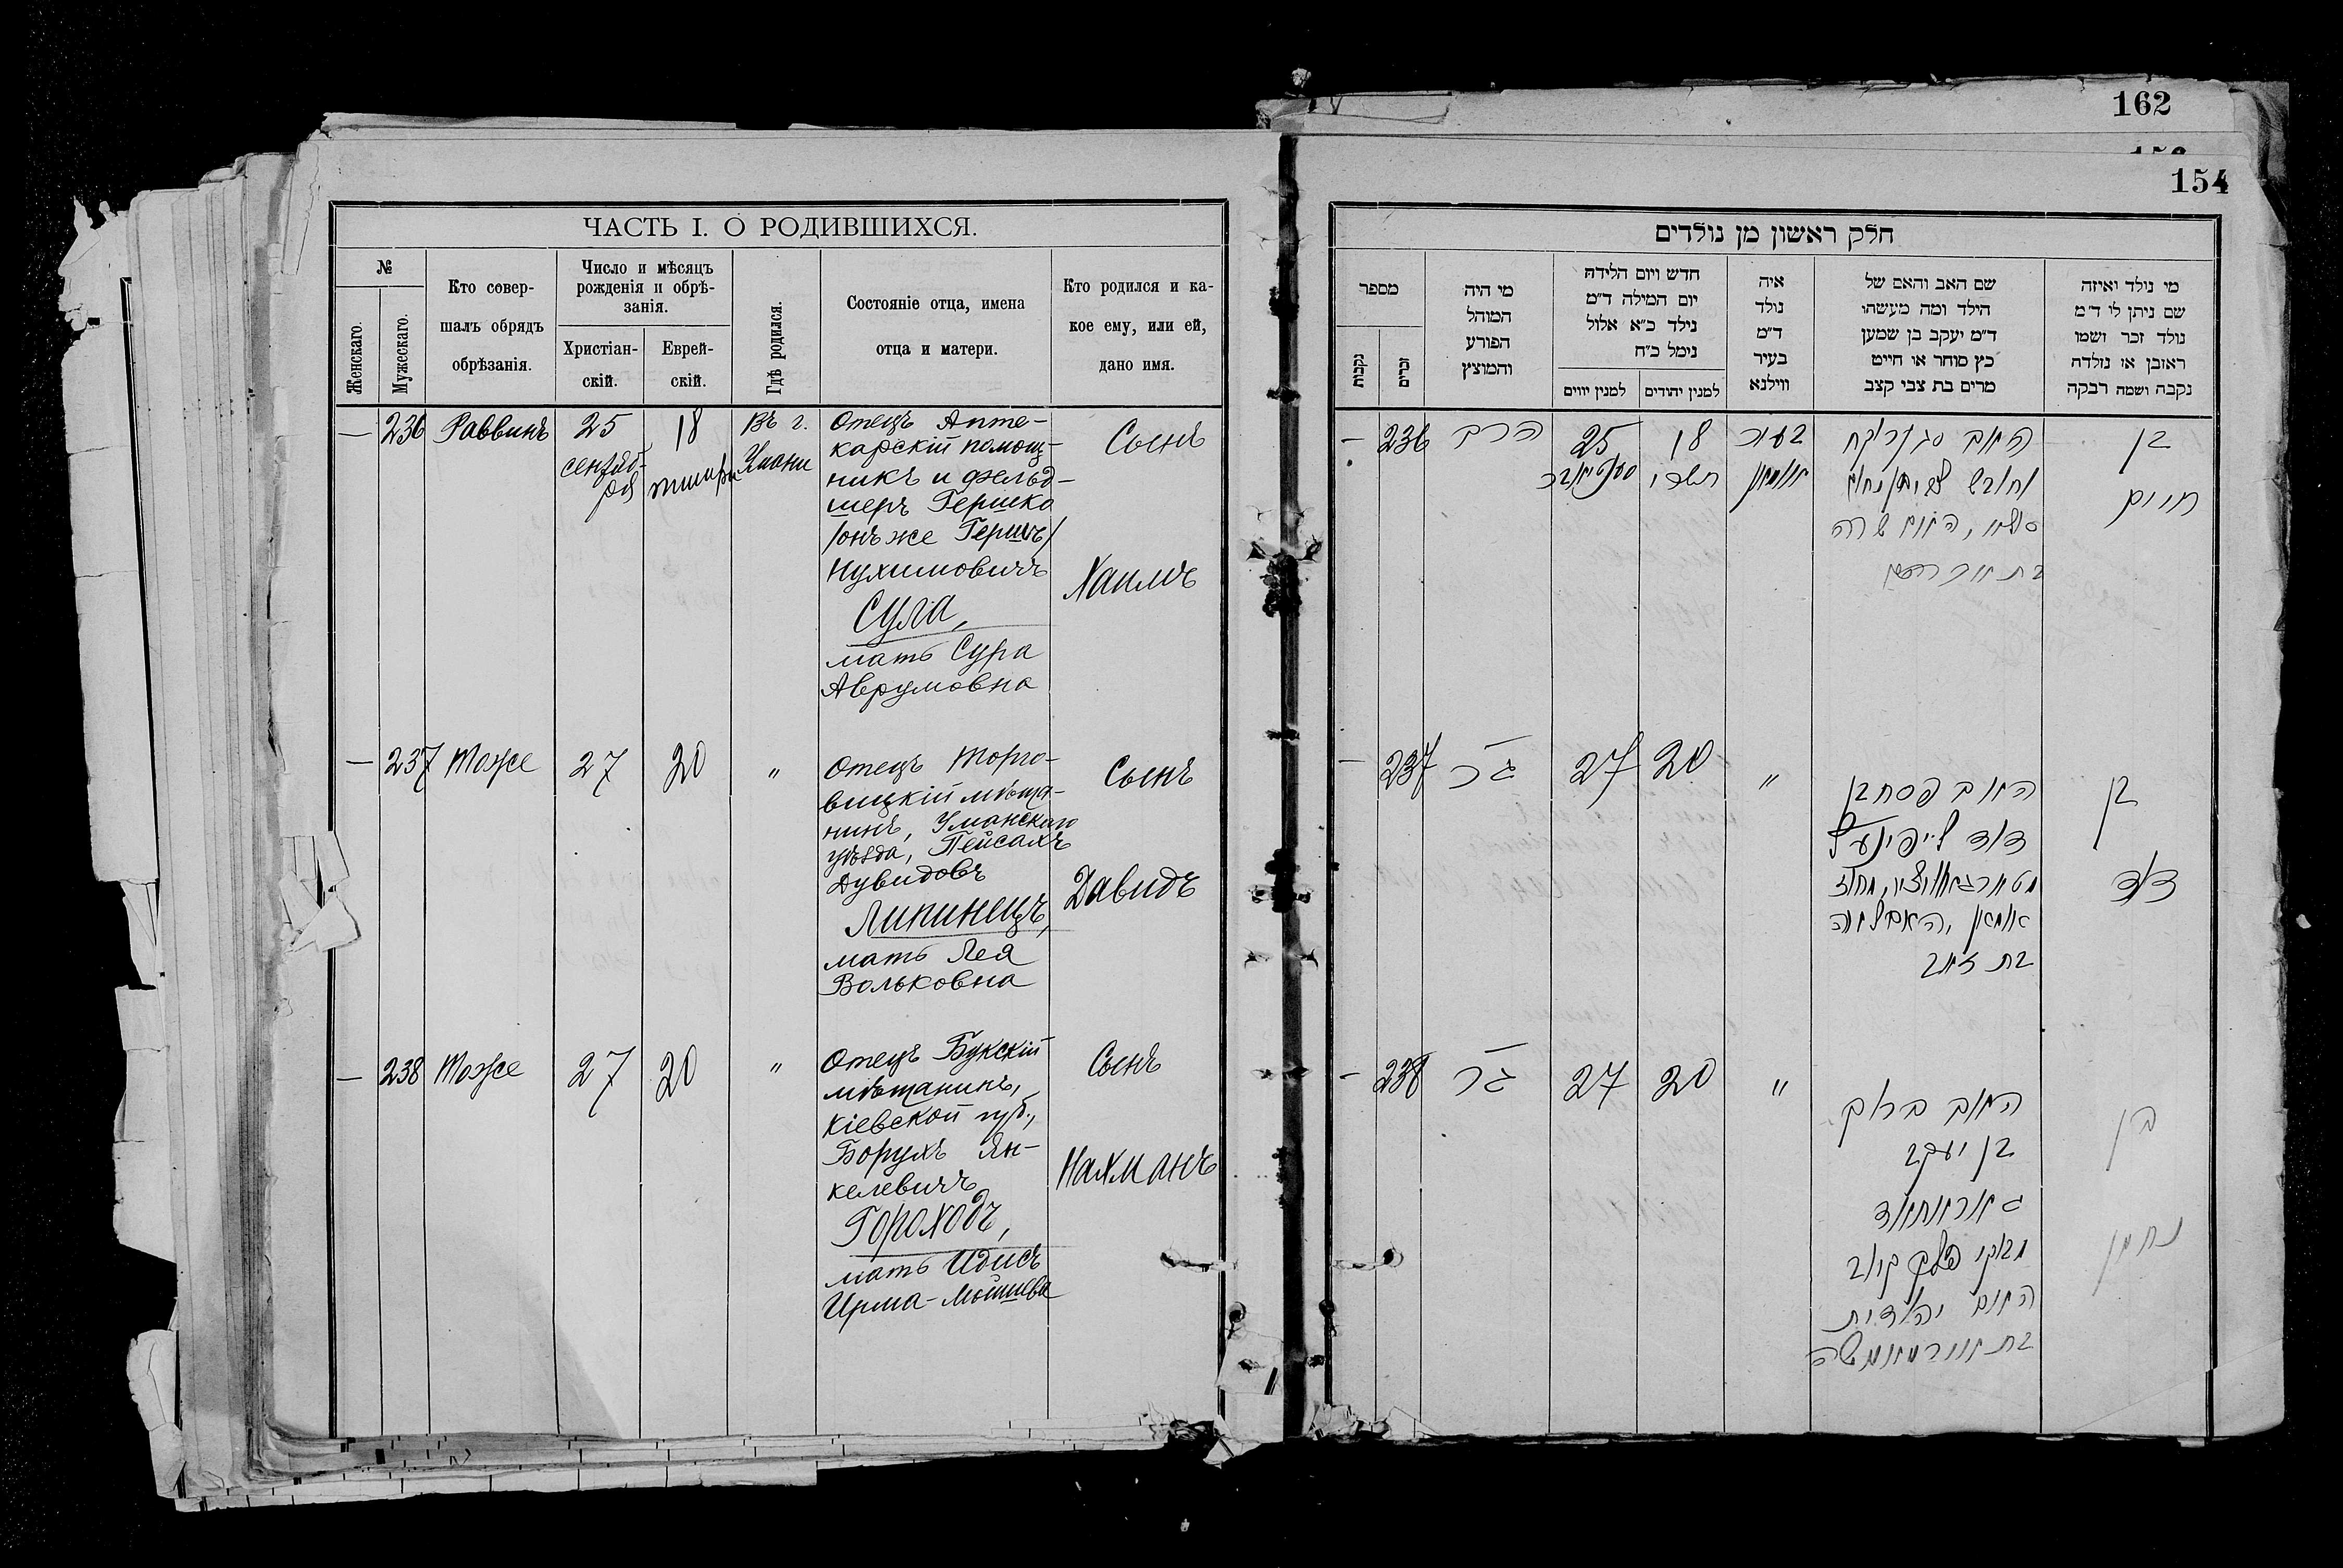 162
154
ЧАСТЬ I. О РОДИВШИХСЯ.
№
Женскаго.
Мужескаго.
Кто совер-
шалъ обрядъ
обрѣзанія.
Число и мѣсяцъ
рожденія и обрѣ-
занія.
Христіан-
скій.
Еврей-
скій.
Гдѣ родился.
Состояніе отца, имена
отца и матери.
Кто родился и ка-
кое ему, или ей,
дано имя.
— 236 Раввинъ
25
сентяб-
ря
18
тишри
Въ г.
Умани
Отецъ Апте-
карскій помощ-
никъ и фельд-
шеръ Гершко
/онъ же Гершъ/
Нухимовичъ
Сула,
мать Сура
Аврумовна
Сынъ
Хаимъ
— 237 Тоже 27 20 "
Отецъ Торго-
вицкій мѣща-
нинъ, Уманскаго
уѣзда, Пейсахъ
Дувидовъ
Липинецъ,
мать Лея
Вольковна
Сынъ
Давидъ
— 238 Тоже 27 20 "
Отецъ Букскій
мѣщанинъ,
Кіевской губ.,
Борухъ Ян-
келевичъ
Гороходъ,
мать Идисъ
Ирма-Мошкова
Сынъ
Нахманъ
חלק ראשון מן נולדים
מספר
נקבות
זכרים
מי היה
המוהל
הפורע
והמוצץ
חדש ויום הלידה
יום המילה ד"מ
נילד כ"א אלול
נימל כ"ח
למנין יווים
למנין יהודים
איה
נולד
ד"מ
בעיר
ווילנא
שם האב והאם של
הילד ומה מעשהו
ד"מ יעקב בן שמעון
כץ סוחר או חייט
מרים בת צבי קצב
מי נולד ואיזה
שם ניתן לו ד"מ
נולד זכר ושמו
ראובן או נולדת
נקבה ושמה רבקה
— 236 הרב
25
18
תשרי
בעיר
בן
חיים
— 237 27 20 "
האב פסח בן
דוד ליפינעץ
בת זאב
בן
דוד
— 238 27 20 "
האב ברוך
בן יעקב
האם יהודית
בן
נחמן